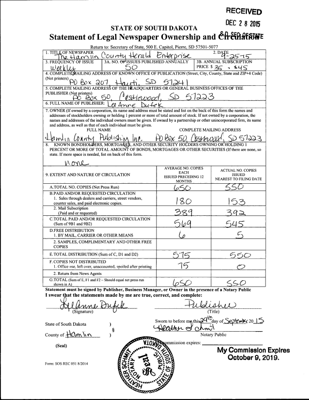 RECEIVED
DEC 28 2015
STATE OF SOUTH DAKOTA
Statement of Legal Newspaper Ownership and
Return to: Secretary of State, 500 E. Capitol, Pierre, SD 57501-5077
1. TITLE OF NEWSPAPER
2. DATE
The Hamlin County Herald Enterprise
9-25-15
3. FREQUENCY OF ISSUE
3A. NO. OF ISSUES PUBLISHED ANNUALLY
3B. ANNUAL SUBSCRIPTION
Weekly
50
PRICE $ 36 - $45
4. COMPLETE MAILING ADDRESS OF KNOWN OFFICE OF PUBLICATION (Street, City, County, State and ZIP+4 Code)
(Not printers)
PO Box 207, Hayti, SD 57241
5. COMPLETE MAILING ADDRESS OF THE HEADQUARTERS OR GENERAL BUSINESS OFFICES OF THE
PUBLISHER (Not printers)
PO Box 50, Castlewood, SD 57223
6. FULL NAME OF PUBLISHER: LeAnne Dufek
7. OWNER (If owned by a corporation, its name and address must be stated and also immediately thereunder the names and
FULL NAME
COMPLETE MAILING ADDRESS
Hamlin County Publishing Inc.
PO Box 50 Castlewood, SD 57223
8. KNOWN BONDHOLDERS, MORTGAGEES, AND OTHER SECURITY HOLDERS OWNING OR HOLDING 1
PERCENT OR MORE OF TOTAL AMOUNT OF BONDS, MORTGAGES OR OTHER SECURITIES (If there are none, so
state. If more space is needed, list on back of this form.
none
9. EXTENT AND NATURE OF CIRCULATION
AVERAGE NO. COPIES
EACH
ISSUED PRECEDING 12
MONTHS
ACTUAL NO. COPIES
ISSUED
NEAREST TO FILING DATE
A. TOTAL NO. COPIES (Net Press Run)
650
550
B. PAID AND/OR REQUESTED CIRCULATION
1. Sales through dealers and carriers, street vendors,
counter sales, and paid electronic copies
180
153
2. Mail Subscription
(Paid and or requested)
389
392
C. TOTAL PAID AND/OR REQUESTED CIRCULATION
(Sum of 9B1 and 9B2)
569
545
D. FREE DISTRIBUTION
1. BY MAIL, CARRIER OR OTHER MEANS
6
5
2. SAMPLES, COMPLIMENTARY AND OTHER FREE
COPIES
E. TOTAL DISTRIBUTION (Sum of C, D1 and D2)
575
550
F. COPIES NOT DISTRIBUTED
1. Office use, left over, unaccounted, spoiled after printing
75
0
2. Return from News Agents
G. TOTAL (Sum of E, F1 and F2 - Should equal net press run
shown in A)
650
550
Statement must be signed by Publisher, Business Manager, or Owner in the presence of a Notary Public
I swear that the statements made by me are true, correct, and complete:
LeAnne Dufek
Publisher
(Signature)
(Title)
State of South Dakota
Sworn to before me this 25th day of September 2015
County of Hamlin
Notary Public
(Seal)
My Commission Expires
October 9, 2019.
Form: SOS REC 051 8/2014